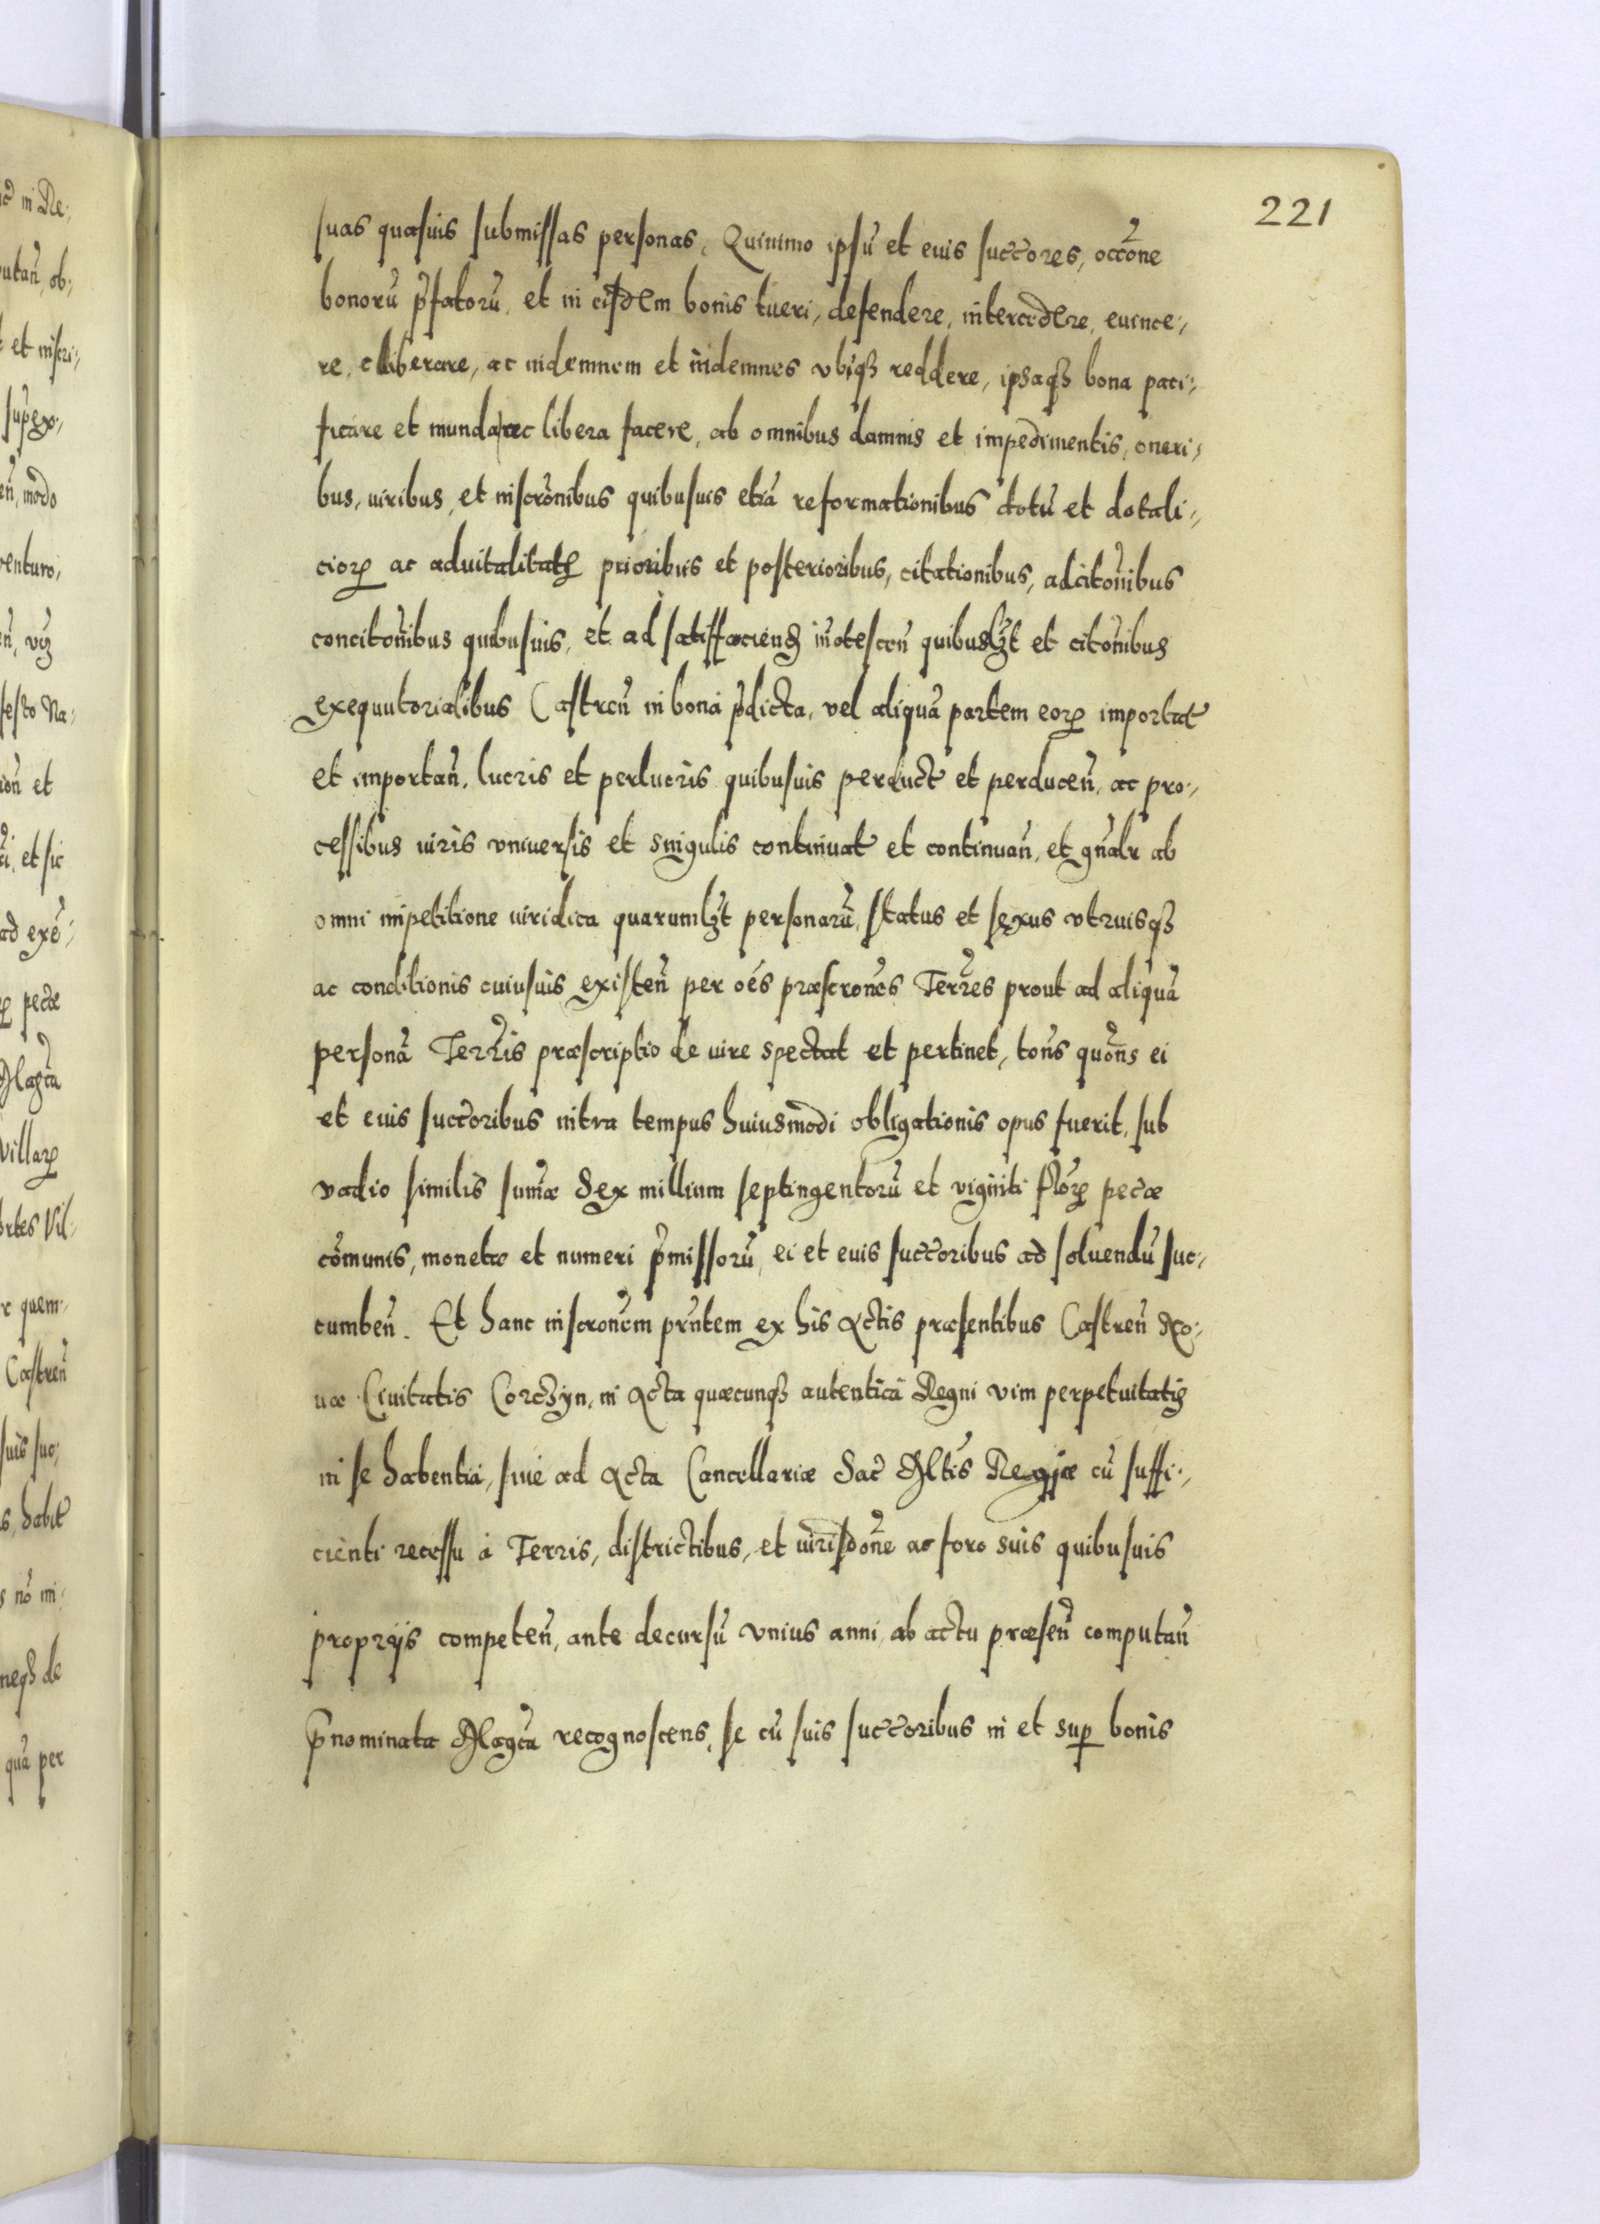 221
suas quasuis submissas personas, Quinimo ipsū et euis succ̄ores, occōne
bonorū p̄fatorū, et in eisdem bonis tueri, defendere, intercedere, euince-,
re, eliberare, ac indemnem et indemnes vbiq3 reddere, ipsaq3 bona paci-,
ficare et mundare ac libera facere, ab omnibus damnis et impedimentis, oneri-,
bus, iuribus, et inscrōnibus quibusuis etiā reformationibus dotū et dotali-,
cioꝝ ac aduitalitatꝫ prioribus et posterioribus, citationibus, adcitōnibus
concitōnibus quibusuis, et ad satisfaciendꝫ iñotescen̄ quibuslꝫt et citōnibus
exequutorialibus Castren̄ in bona p̄dicta, vel aliquā partem eoꝝ importat
et importan̄, lucris et perlucris quibusuis perduct et perducen̄, ac pro-,
cessibus iuris vniuersis et singulis continuat et continuan̄, et gn̄alr ab
omni impetitione iuridica quarumlꝫt personarū, status et sexus vtriusq3
ac conditionis cuiusuis existen̄ per oēs præscrōnes Terr̄es prout ad aliquā
personā Terr̄is præscriptio de iure spectat et pertinet, tōns quōns ei
et euis succ̄oribus intra tempus huiusmodi obligationis opus fuerit, sub
vadio similis sum̄æ Sex millium septingentorū et viginti flōꝝ pec̄æ
cōmunis, monetæ et numeri p̄missorū, ei et euis succ̄oribus ad soluendū suc-,
cumben̄. Et hanc inscrōnem prn̄tem ex his Actis præsentibus Castren̄ No-,
uæ Ciuitatis Corczyn, in Acta quæcunq3 autentica Regni vim perpetuitatis
in se habentia, siue ad Acta Cancellariæ Sac̄ Mltis Regiæ cū suffi-,
cienti recessu à Terris, districtibus, et iurisdōne ac foro suis quibusuis
proprijs competen̄, ante decursū vnius anni ab actu præsen̄ computan̄
p̄nominata Magc̄a recognoscens, se cū suis succ̄oribus in et suꝑ bonis